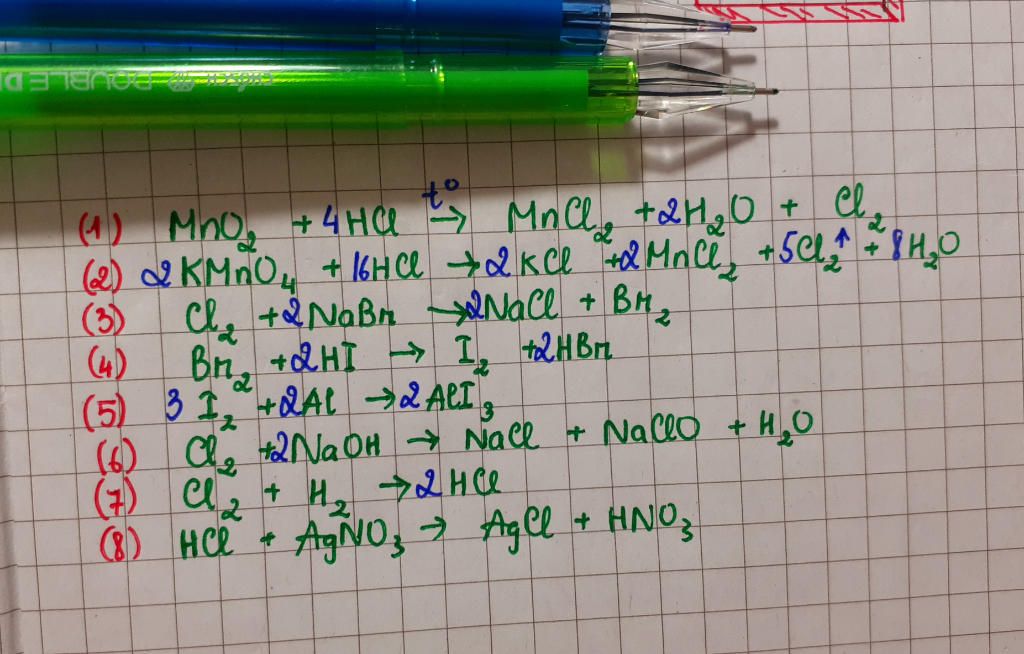 DOUBLE D
(1) MnO₂ + 4HCl t° → MnCl₂ + 2H₂O + Cl₂
(2) 2KMnO₄ + 16HCl → 2KCl + 2MnCl₂ + 5Cl₂↑ + 8H₂O
(3) Cl₂ + 2NaBr → 2NaCl + Br₂
(4) Br₂ + 2HI → I₂ + 2HBr
(5) 3I₂ + 2Al → 2AlI₃
(6) Cl₂ + 2NaOH → NaCl + NaClO + H₂O
(7) Cl₂ + H₂ → 2HCl
(8) HCl + AgNO₃ → AgCl + HNO₃